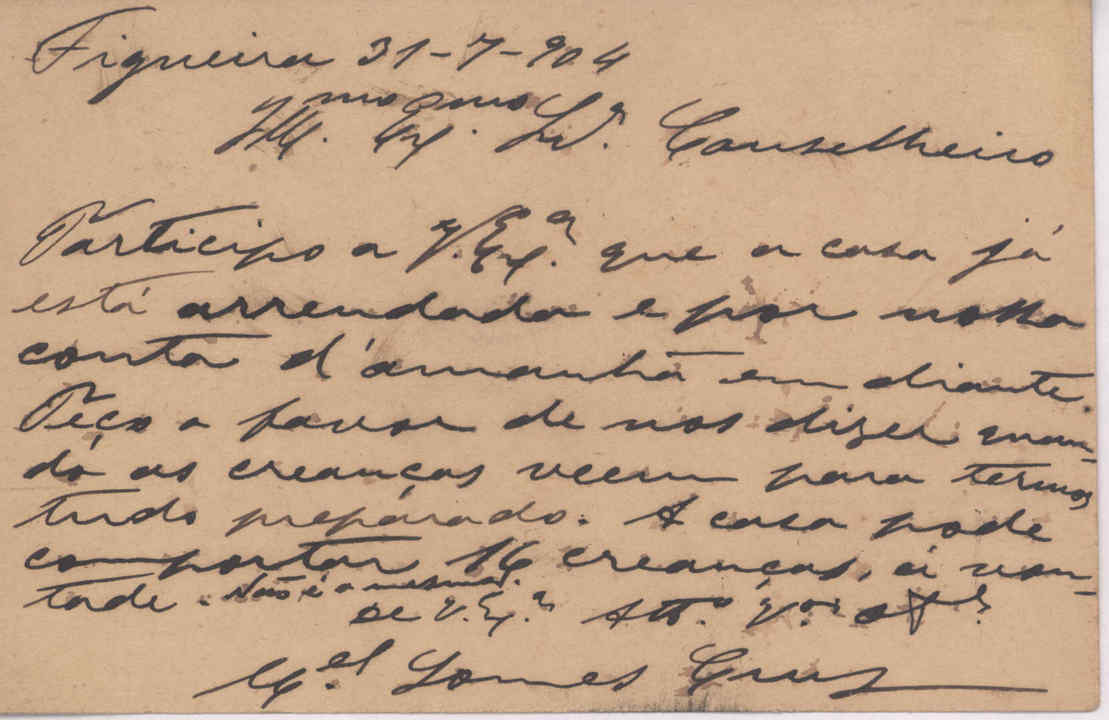 Figueira 31-7-904
Ill.mo Ex.mo Sr. Conselheiro
Participo a V. Ex.a que a casa já
está arrendada e por nossa
conta d'amanhã em diante.
Peço o favor de nos dizer quan-
do as creanças veem para termos
tudo preparado. A casa pode
comportar 16 creanças, á von-
tade. Não é a mesma.
De V. Ex.a Att.o V.or
M.el Gomes Cruz